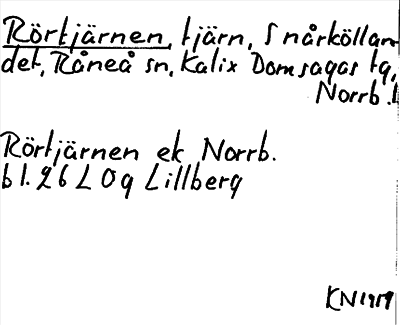 Rörtjärnen, tjärn, Snårköllan-
det, Råneå sn, Kalix Domsagas tg,
Norrb. l
Rörtjärnen ek Norrb.
bl. 26 L Og Lillberg
KN 1919